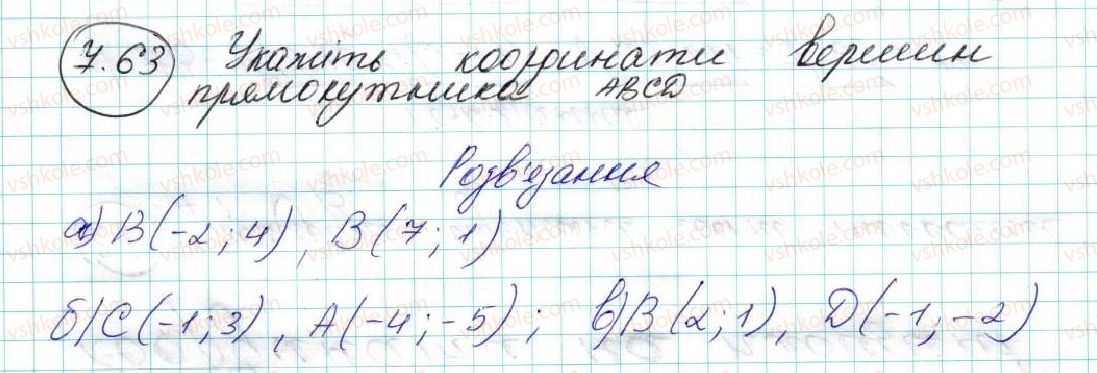 7.63 Укажіть координати вершин
прямокутника ABCD
Розв'язання
а) B(-2; 4), B(7; 1)
б) C(-1; 3), A(-4; -5); в) B(2; 1), D(-1; -2)